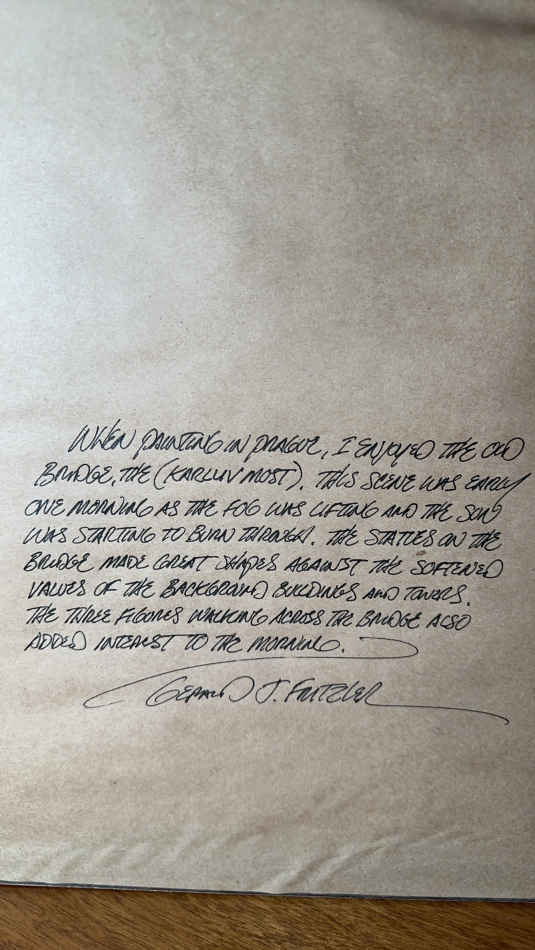 WHEN PAINTING IN PRAGUE, I ENJOYED THE OLD
BRIDGE, THE (KARLUV MOST). THIS SCENE WAS EARLY
ONE MORNING AS THE FOG WAS LIFTING AND THE SUN
WAS STARTING TO BURN THROUGH. THE STATUES ON THE
BRIDGE MADE GREAT SHAPES AGAINST THE SOFTENED
VALUES OF THE BACKGROUND BUILDINGS AND TOWERS.
THE THREE FIGURES WALKING ACROSS THE BRIDGE ALSO
ADDED INTEREST TO THE MORNING.
GERALD J. FRITZLER